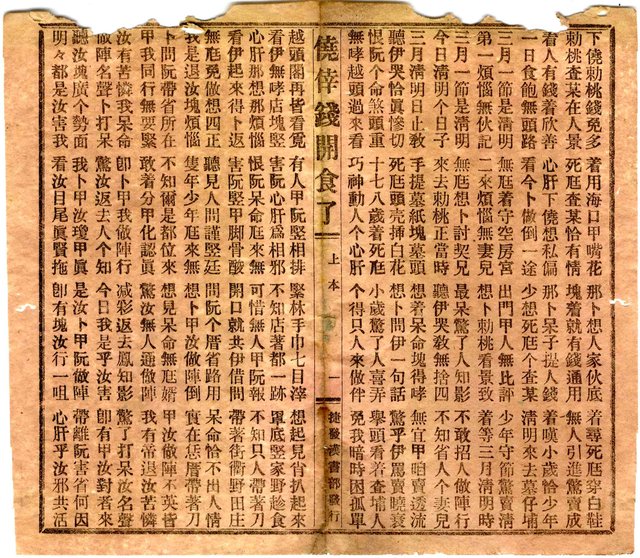 下僥勅桃錢免多　着用海口甲嘴花　那卜想人家伙底　着尋死尫穿白鞋
勅桃查某在人景　死尫查某恰有情　塊着就有錢通用　無人引進驚賣成
看人有錢着欣善　心肝下僥想私偏　那卜呆子提人錢　着嘆小歲恰少年
一日食飽無頭路　看今卜做倒一途　少想死尫个查某　清明來去墓仔埔
三月一節是清明　無尫着守空房宮　出門甲人無比評　少年守節驚賣清
第一煩惱無伙記　二來煩惱無妻兒　想卜勅桃看景致　着等三月清明時
三月一節是清明　無尫想卜討契兄　最呆驚了人知影　不敢招人出門行
今日清明个日子　來去勅桃正當時　聽伊哭敎無捨四　不知省人个妻兒
三月淸明日止敎　手提墓紙塊墓頭　想着呆命塊得哮　無宜甲咱賣透流
聽伊哭恰眞慘切　死尫頭壳揷白花　想卜問伊一句話　驚乎伊罵賣曉衰
恨阮个命煞頭重　十七八歲着死尫　小歲驚了人喜弄　舉頭看着查埔人
無哮越頭過來看　巧神動人个心肝　个得只人來做伴　免我暗時困孤單
僥倖錢開食了　上本　一　捷發漢書部發行
越頭閣再皆看覓　有人甲阮竪相排　緊林手巾七目滓　想起見肖扒起來
看伊無哮店塊竪　害阮心肝爲相邪　不知店着都一跡　罩底竪家野趁食
心肝那想那煩惱　恨阮呆命尫來無　可惜無人甲阮報　不知只人帶着刀
看伊起來得卜返　害阮竪甲脚骨酸　開口就共伊借問　帶着街衢野田庄
無尫免做想四正　聽見人問謹竪廷　問阮个厝省路用　呆命恰不出人情
是返汝塊塊煩惱　隻年少年尫來無　想卜甲汝問做陣　實在恁厝帶着刀
卜問阮帶省所在　不知爾是都位來　想見呆命無尫婿　甲汝做陣不英皆
甲我同行無要緊　敢着分甲化認眞　驚汝無人通做陣　我有帝退汝苦憐
汝有苦憐我呆命　卽卜甲我做陣行　减彩返去鳳知影　驚了打呆汝名聲
做陣名聲卜打呆　驚汝返去人个知　今日我是乎汝害　卽有甲汝對着來
聽汝塊廣个勢面　我卜甲汝瓊甲眞　是汝卜甲阮做陣　帶離阮害省何因
明々都是汝害我　看汝目尾眞賢拖　卽有塊汝行一咀　心肝乎汝邪共活